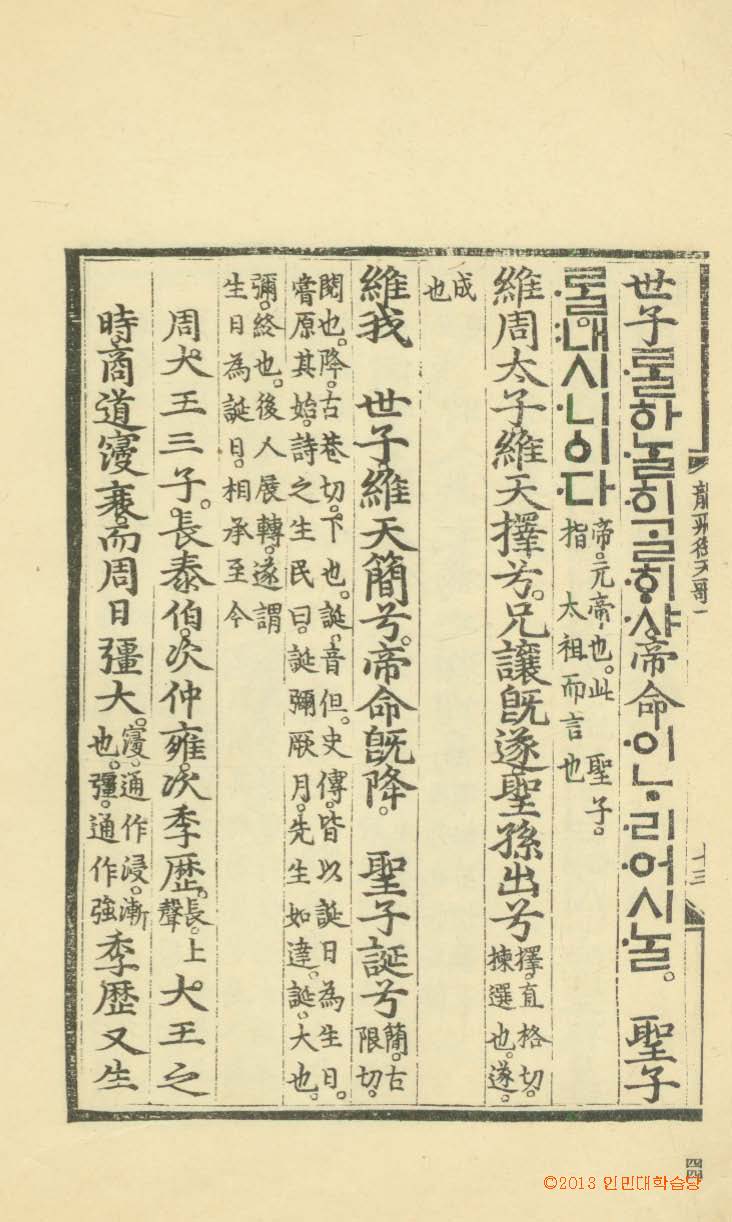 龍飛御天歌一
十三
世子ᄅᆞᆯ하ᄂᆞᆯ히ᄀᆞᆯᄒᆡ샤帝命이ᄂᆞ리어시ᄂᆞᆯ。 聖子
ᄅᆞᆯ내시니ᅌᅵ다
帝。元帝也。此 聖子。
指 太祖而言也
維周太子。維天擇兮。兄讓旣遂。聖孫出兮
擇。直格切。
揀選也。遂。
成
也
維我 世子。維天簡兮。帝命旣降。 聖子誕兮
簡。古
限切。
閱也。降。古巷切。下也。誕。音但。史傳。皆以誕日為生日。
嘗原其始。詩之生民曰。誕彌厥月。先生如達。誕。大也。
彌。終也。後人展轉。遂謂
生日為誕日。相承至今
周大王三子。長泰伯。次仲雍。次季歷。
長。上
聲
大王之
時。商道寖衰。而周日彊大。
寖。通作浸。漸
也。彊。通作強
季歷又生
四四
©2013 인민대학습당